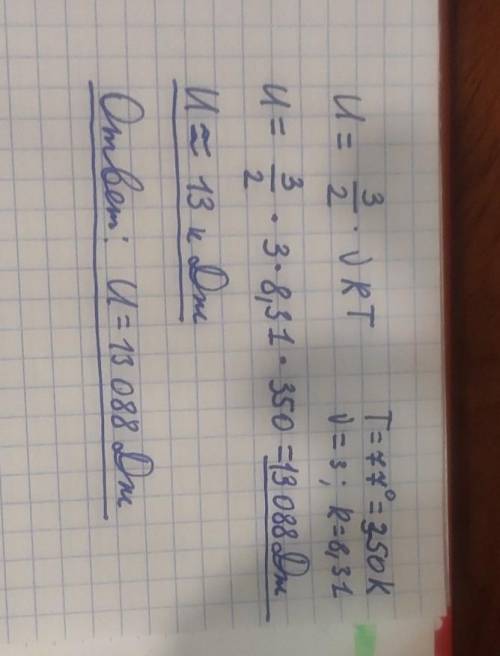 U = 3/2 · νRT
T = 77° = 350K
ν = 3; R = 8,31
U = 3/2 · 3 · 8,31 · 350 = 13 088 Дж
U ≈ 13 к Дж
Ответ: U = 13 088 Дж